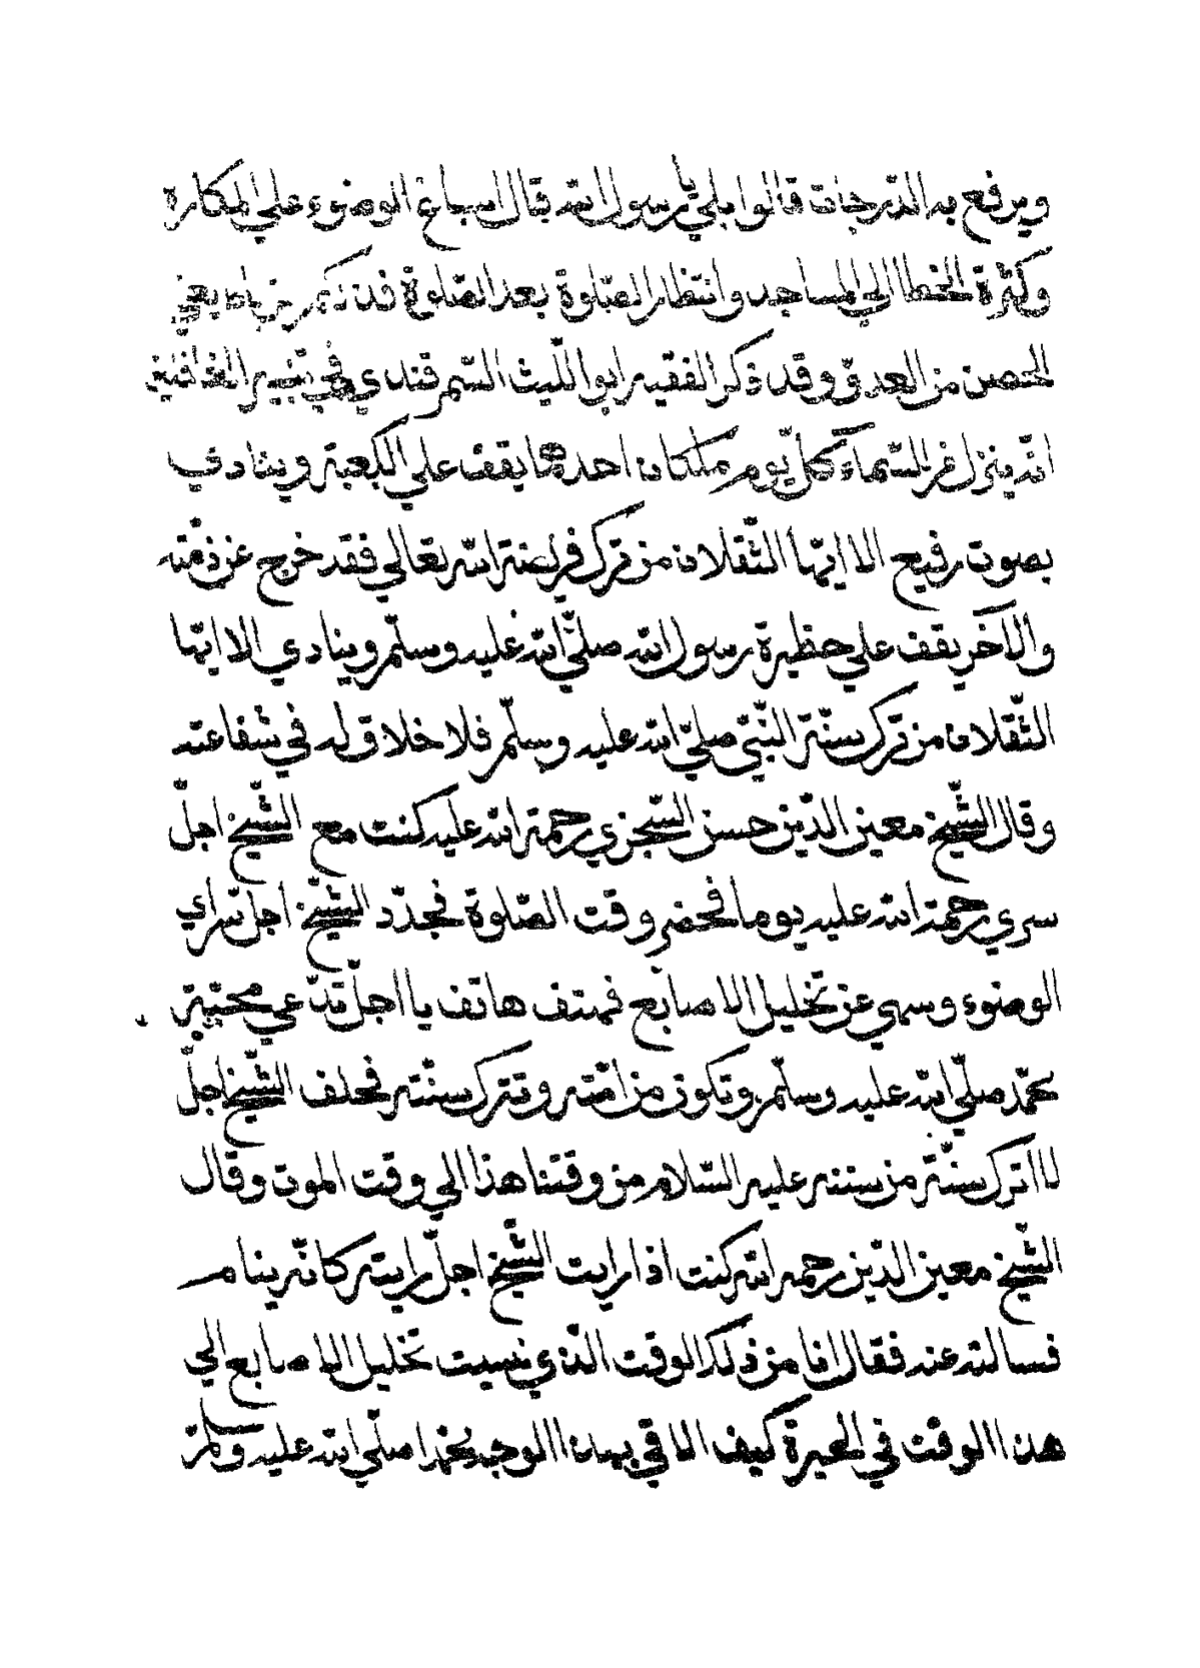 ويرفع به الدّرجات قالوا بلي يا رسول الله قال اسباغ الوضوء علي المكاره
وكثرة الخطا الي المساجد وانتظار الصّلوة بعد الصّلوة فذلكم رباط يعني
الحصن من العدوّ وقد ذكر الفقيه ابو اللّيث السّمرقندي في تنبيه الغافلين
انّه ينزل من السّماء كلّ يوم ملكان احدهما يقف علي الكعبة وينادي
بصوت رفيع الا ايّها الثّقلان من ترك فريضة الله تعالي فقد خرج عن ذمّته
والآخر يقف علي حظيرة رسول الله صلّي الله عليه وسلّم وينادي الا ايّها
الثّقلان من ترك سنّة النّبيّ صلّي الله عليه وسلّم فلا خلاق له في شفاعته
وقال الشّيخ معين الدّين حسن السّجزي رحمة الله عليه كنت مع الشّيخ اجلّ
سري رحمة الله عليه يوما فحضر وقت الصّلوة فجدّد الشّيخ اجلّ سراي
الوضوء وسهي عن تخليل الاصابع فهتف هاتف يا اجلّ تدّعي محبّة
محمّد صلّي الله عليه وسلّم وتكون من امّته وتترك سنّته فحلف الشّيخ اجلّ
لا اترك سنّة من سننه عليه السّلام من وقتنا هذا الي وقت الموت وقال
الشّيخ معين الدّين رحمه الله كنت اذا رايت الشّيخ اجلّ رايته كانّه ينام
فسالته عنه فقال انا من ذلك الوقت الّذي نسيت تخليل الاصابع الي
هذا الوقت في الحيرة كيف الاقي بهذا الوجه محمّدا صلّي الله عليه وسلّم